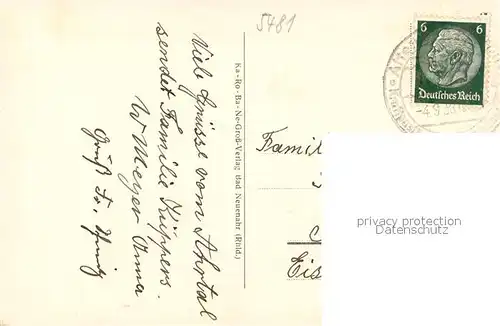 5481
Viele Grüsse vom Ahrtal
sendet Familie Küppers.
W Meyer Anna
Gruß Fr.
Ka-Ro-Ba-Ne-Groß-Verlag Bad Neuenahr (Rhld.)
6 6
Deutsches Reich
Famil
Eis
privacy protection
Datenschutz